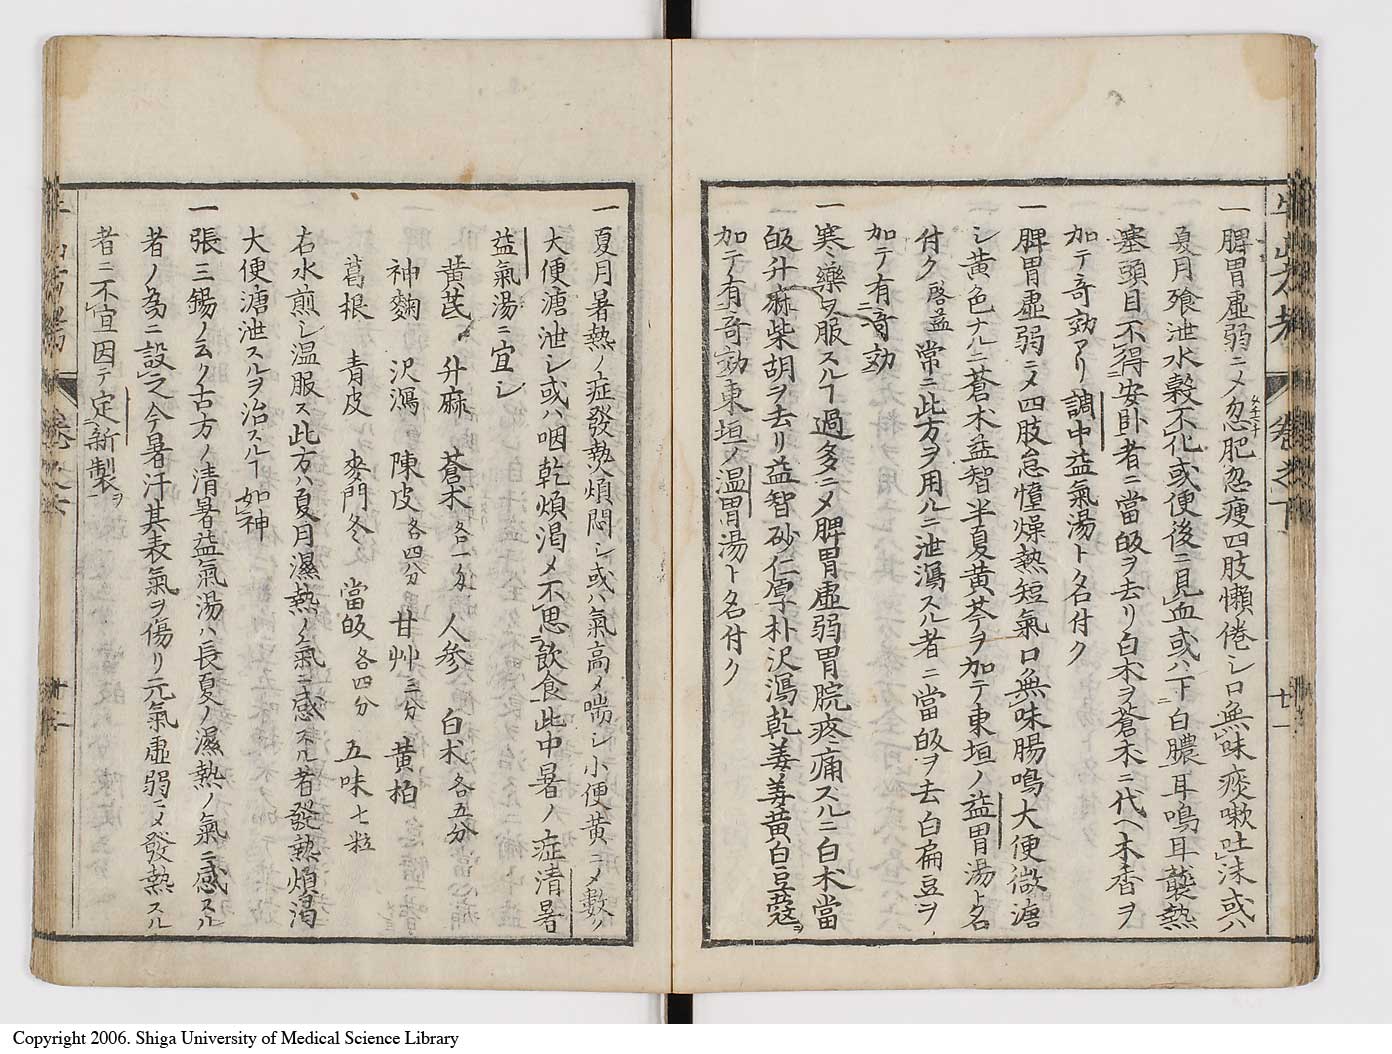 一脾胃虚弱ニメ忽肥忽痩四肢懶倦シ口無味痰嗽吐沫或ハ
夏月飱泄水穀不化或便後ニ見血或ハ下白膿耳鳴耳聾熱
塞頭目不得安臥者ニ當皈ヲ去リ白朮ヲ蒼朮ニ代ヘ木香ヲ
加テ奇効アリ調中益氣湯ト名付ク
一脾胃虚弱ニメ四肢怠憧燥熱短氣口無味腸鳴大便微溏
シ黄色ナルニ蒼朮益智半夏黄芩ヲ加テ東垣ノ益胃湯ト名
付ク啓益常ニ此方ヲ用ルニ泄瀉スル者ニ當皈ヲ去白扁豆ヲ
加テ有奇効
一寒藥ヲ服スルヿ過多ニメ脾胃虚弱胃脘疼痛スルニ白朮當
皈升麻柴胡ヲ去リ益智砂仁厚朴沢瀉乾姜姜黄白豆蔲ヲ
加テ有奇効東垣ノ温胃湯ト名付ク
卷之下
廿一
一夏月暑熱ノ症發熱煩悶シ或ハ氣高メ喘シ小便黄ニメ數ク
大便溏泄シ或ハ咽乾煩渇メ不思飲食此中暑ノ症清暑
益氣湯ニ宜シ
黄芪 升麻 蒼朮各一匁 人参 白朮各五分
神麴 沢瀉 陳皮各四分 甘艸三分 黄柏
葛根 青皮 麥門冬 當皈各四分 五味七粒
右水煎シ温服ス此方ハ夏月濕熱ノ氣ニ感スル者發熱煩渇
大便溏泄スルヲ治スルヿ如神
一張三錫ノ云ク古方ノ清暑益氣湯ハ長夏ノ濕熱ノ氣ニ感スル
者ノ為ニ設之今暑汗其表氣ヲ傷リ元氣虚弱ニメ發熱スル
者ニ不宜因テ定新製ヲ
Copyright 2006. Shiga University of Medical Science Library